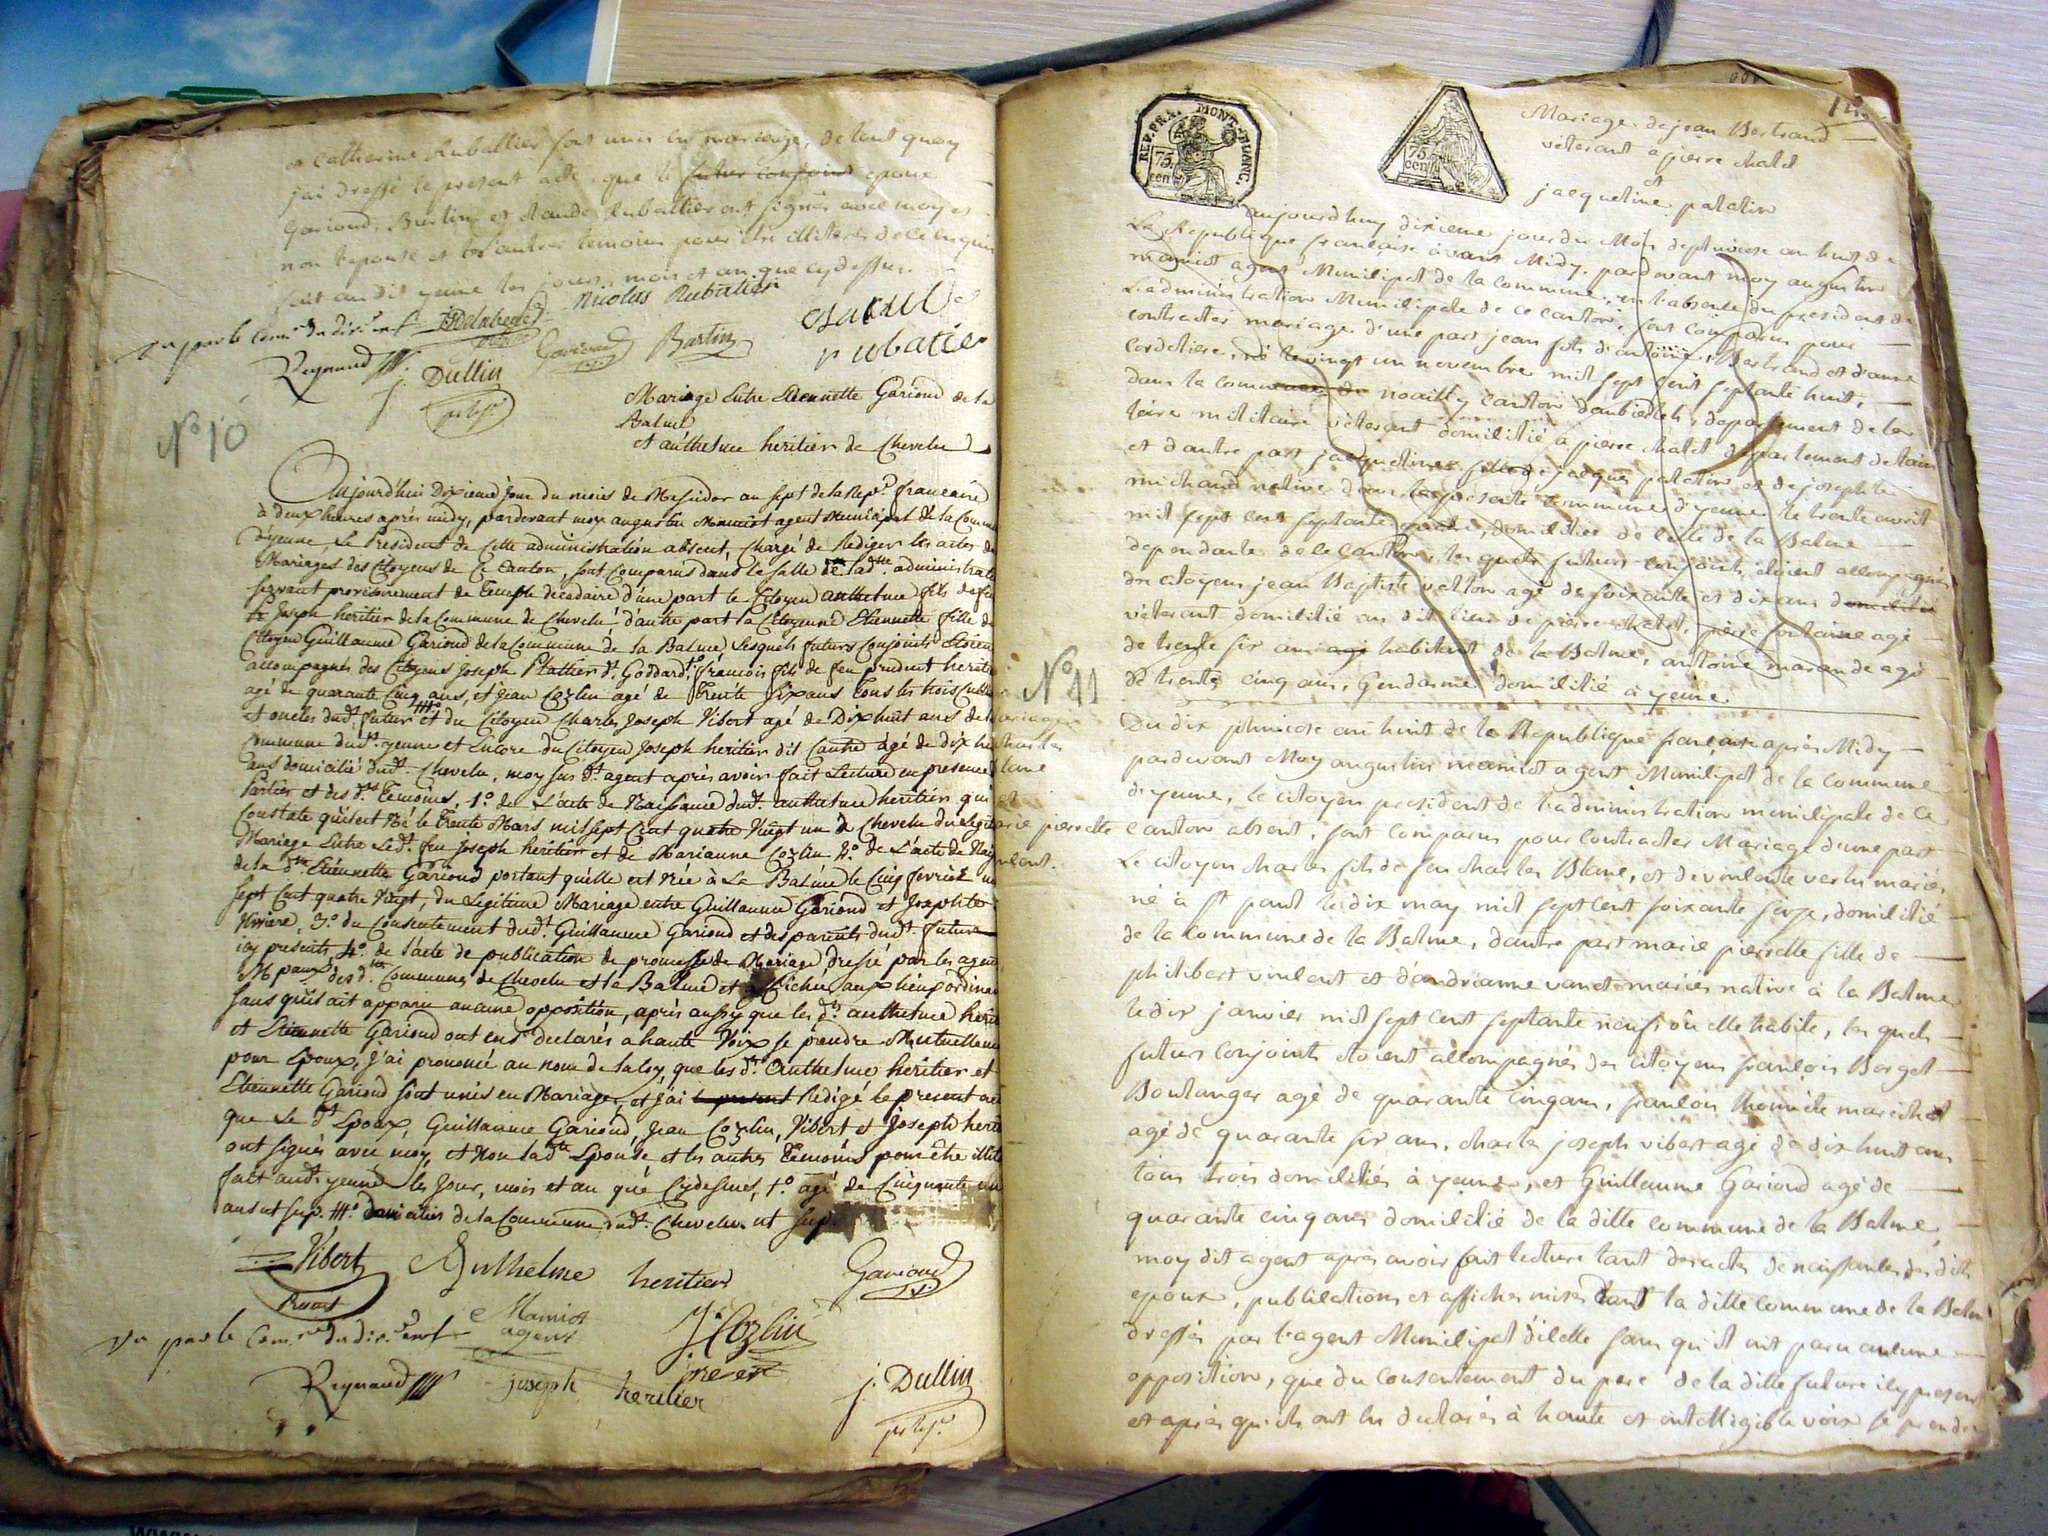 et Catherine Rubattier sont unis en mariage, de tout quoy
j'ai dressé le present acte, que le futur conjoint epoux
Gariond, Burtin et Claude Rubattier ont signés avec moy et
non l'epouse et les autres temoins pour être illiterés de ce enquis
fait audit yenne les jour, mois et an que cydessus.
Nicolas Rubatier
Vu par le Com.re du dir.re exe.f
Gariond Burtin
rubatier
Reynaud
J. Dullin
N° 10
Mariage Entre Etiennette Gariond de la
Balme
et anthelme heritier de Chevelu
Aujourd'hui Dixieme jour du mois de Messidor an sept de la Rep.e francaise
à deux heures après midy, pardevant moy augustin Mamiot agent Municipal de la Commune
d'yenne, Le President de Cette administration absent, Chargé de Rediger les actes de
Mariages des Citoyens de Ce Canton, sont Comparus dans la salle de lad.tte administrat
servant provisoirement de Temple decadaire d'une part le Citoyen anthelme fils de feu
Joseph heritier de la Commune de Chevelu d'autre part la Citoyenne Etiennette fille de
Citoyen Guillaume Gariond de la Commune de la Balme Lesquels futurs Conjoints Etoient
accompagnés des Citoyens Joseph Plattier d.t Goddard, françois fils de feu prudent herit
agé de quarante cinq ans, et Jean Cozlin agé de Trente six ans Tous les trois Cult
et oncles dud.t futur et du Citoyen Charles Joseph Vibert agé de Dix huit ans de la
Commune dud.t yenne et Encore du Citoyen Joseph heritier dit Cautre agé de dix hu
ans domicilié dud.t Chevelu, moy sus d.t agent après avoir fait Lecture en presence
Parties et des d.ts Temoins, 1.° de L'acte de Naissance dud.t anthelme heritier qui
Constate qu'il est Né le Trente Mars mil sept Cent quatre Vingt un à Chevelu du Legit
Mariage Entre Led.t feu Joseph heritier et de Marianne Cozlin 2.° de L'acte de Nais
de la d.tte Etiennette Gariond portant qu'elle est née à La Balme le Cinq fevrier m
sept Cent quatre Vingt, du Légitime Mariage entre Guillaume Gariond et Josephte
3.° du Consentement dud.t Guillaume Gariond et des parents dud.t futur
icy presents, 4.° de l'acte de publication de promesse de Mariage dressé par les agent
M.paux des d.tes Communes de Chevelu et la Balme et affichés aux lieux ordinai
sans qu'il ait apparu aucune opposition, après aussy que les d.ts anthelme herit
et Etiennette Gariond ont eus declarés a haute Voix se prendre Mutuellemen
pour Epoux, j'ai prononcé au nom de la loy que les d.ts anthelme heritier et
Etiennette Gariond sont unis en Mariage, et j'ai le present Redigé le present ac
que Le d.t Epoux, Guillaume Gariond, Jean Cozlin, Vibert et Joseph herit
ont signés avec moy, et Non lad.tte Epouse et les autres Temoins pour être illit
fait aud.t yenne les Jour, mois et an que Cydessus, 1.° agé de Cinquante un
ans ut sup. domiciliés de la Commune dud.t Chevelu ut sup.
Vibert Anthelme heritier Gariond
Mamiot
agent
J. Cozlin
Vu par le Com.re du dir.re exe.f
Reynaud joseph heritier
J. Dullin
REP. FRA. MONT-BLANC.
75 cen
75 cen
Mariage de jean Bertrand
véterant à pierre chatel
et
jacqueline palatin
aujourdhuy dixieme jour du Mois de pluviose an huit de
La Republique française avant Midy. pardevant moy augustin
mamiot agent Municipal de la commune, en l'absence du president de
l'administration Municipale de ce canton, sont comparus pour
contracter mariage d'une part jean fils d'antoine Bertrand et d'anne
cordeliere, né le vingt un novembre mil sept cent septante huit,
dans la commune de noailly canton d'ambierlé, departement de la
loire militaire véterant domicilié à pierre chatel departement de l'ain
et d'autre part jacqueline fille de jacques palatin et de josephte
michaud native dans la présente commune d'yenne le trente avril
mil sept cent septante domiciliée de celle de la Balme
dependante de ce canton, les quels futurs conjoints étoient accompagnés
des citoyens jean Baptiste vetton agé de soixante et dix ans domicilié
véterant domicilié au dit lieu de pierre chatel, pierre fontaine agé
de trente six ans agé habitant de la Balme, antoine maran de agé
de trente cinq ans, Gendarme domicilié à yenne.
N° 11
Mariage
charles
Blanc
et
marie pierrette
vulent.
Du dix pluviose an huit de la Republique française après Midy
pardevant Moy augustin mamiot agent Municipal de la commune
d'yenne, le citoyen president de l'administration municipale de ce
canton absent, sont comparus pour contracter Mariage d'une part
Le citoyen charles fils de feu charles Blanc, et de vulente verlin mariés
né à st paul le dix may mil sept cent soixante seize, domicilié
de la commune de la Balme, d'autre part marie pierrette fille de
philibert vulent et d'andrianne vanet mariés native à la Balme
le dix janvier mil sept cent septante neuf où elle habite, les quels
futurs conjoints étoient accompagnés des citoyens françois Borget
Boulanger agé de quarante cinq ans, françois thomète maréchal
agé de quarante six ans, charle joseph vibert agé de dix huit ans
tous trois domiciliés à yenne, et Guillaume Gariond agé de
quarante cinq ans domicilié de la ditte commune de la Balme
moy dit agent après avoir fait lecture tant des actes de naissances des dits
epoux, publications et affiches mises dans la ditte commune de la Balme
dressés par l'agent Municipal d'icelle sans qu'il ait paru aucune
opposition, que du consentement du pere de la ditte future icy present
et après qu'ils ont eu declarés à haute et intelligible voix se prendre